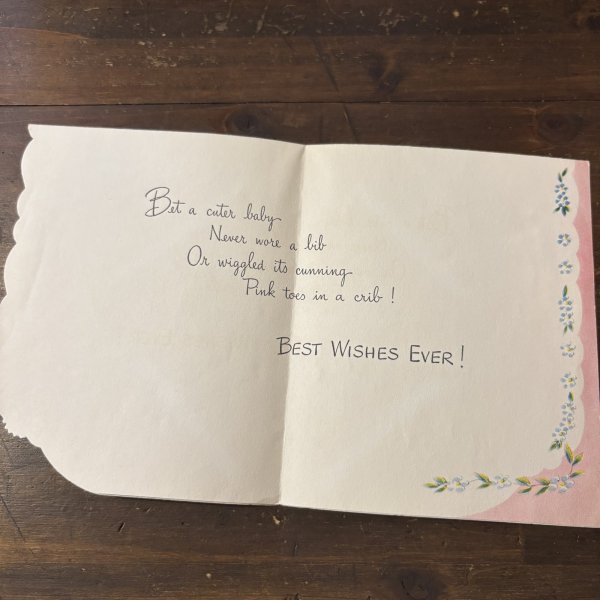 Bet a cuter baby
Never wore a bib
Or wiggled its cunning
Pink toes in a crib!
BEST WISHES EVER!